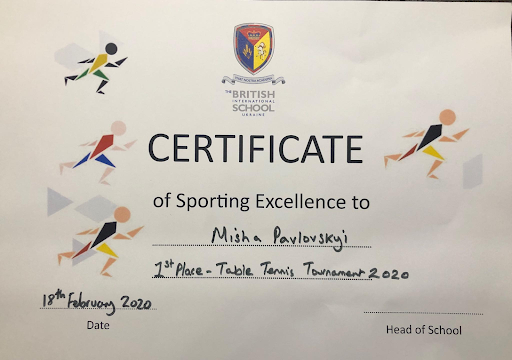 THE BRITISH
INTERNATIONAL
SCHOOL
UKRAINE
CERTIFICATE
of Sporting Excellence to
Misha Pavlovskyi
1st Place - Table Tennis Tournament 2020
18th February 2020
Date
Head of School